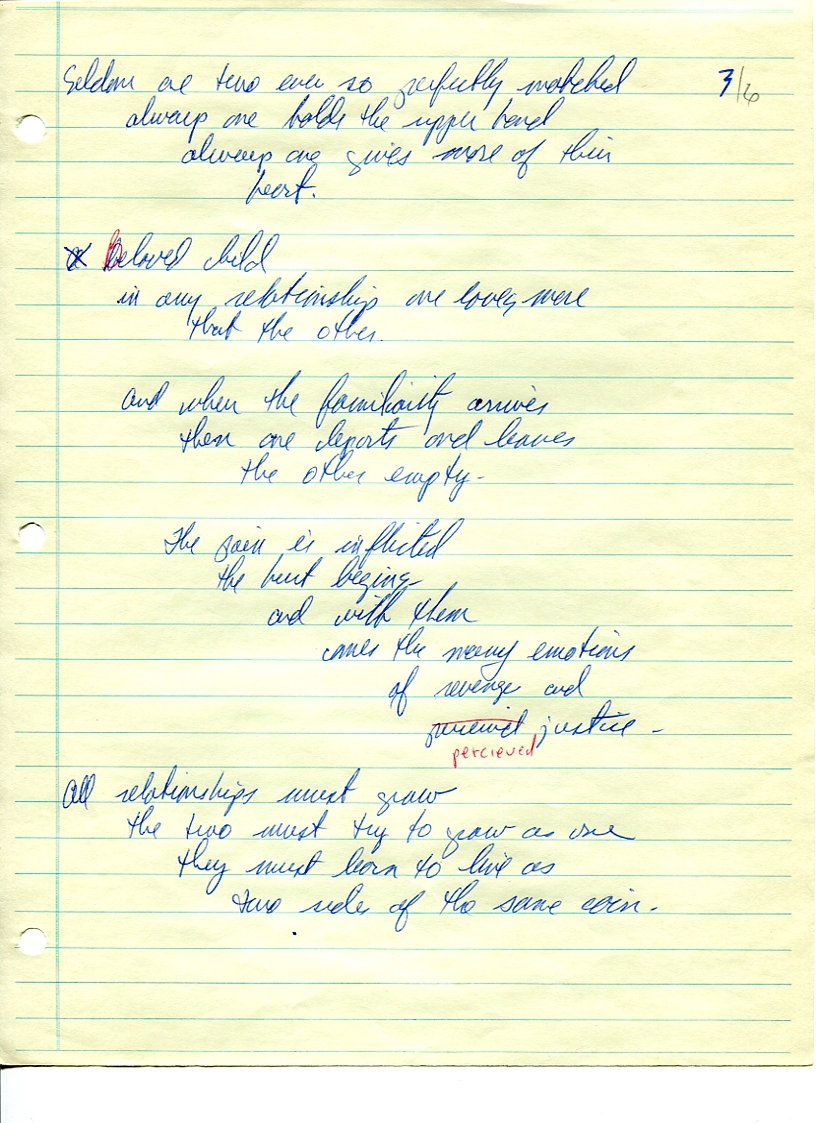 Seldom are two ever so perfectly matched 3/6
always one holds the upper hand
always one gives more of their
heart.
Beloved child
in any relationship one loves more
that the other.
and when the familiarity arrives
then one departs and leaves
the other empty-
The pain is inflicted
the hurt begins
and with them
comes the many emotions
of revenge and
justice -
percieved
All relationships must grow
the two must try to grow as one
they must learn to live as
two sides of the same coin.